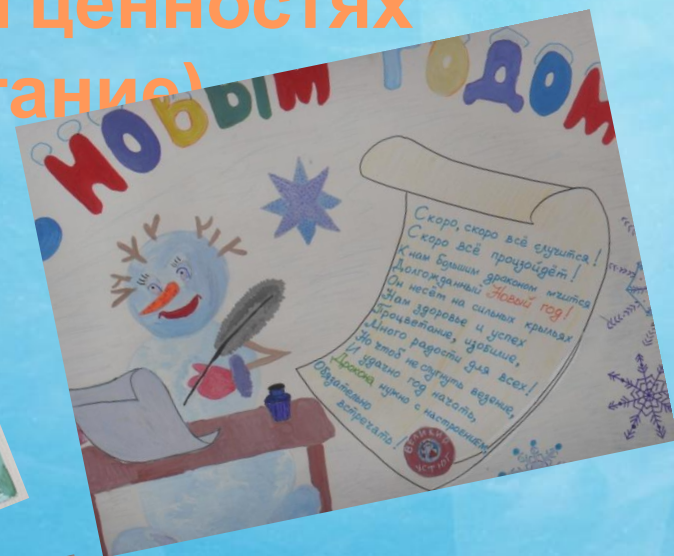 ценностях
НОВЫМ ГОДОМ
Скоро, скоро всё случится!
Скоро всё произойдёт!
К нам Большим драконом мчится
Долгожданный Новый год!
Он несёт на сильных крыльях
Нам здоровье и успех
Процветание, изобилие,
Много радости для всех!
Но чтоб не спугнуть везение,
И удачно год начать,
Дракона нужно с настроением
Обязательно
встречать!
ВЕЛИКИЙ
УСТЮГ